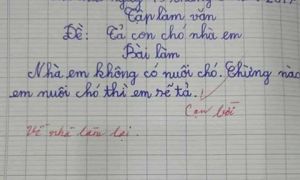 Tập làm văn
Đề: Tả con chó nhà em
Bài làm
Nhà em không có nuôi chó. Chừng nào
em nuôi chó thì em sẽ tả.!
Cạn lời
Về nhà làm lại.